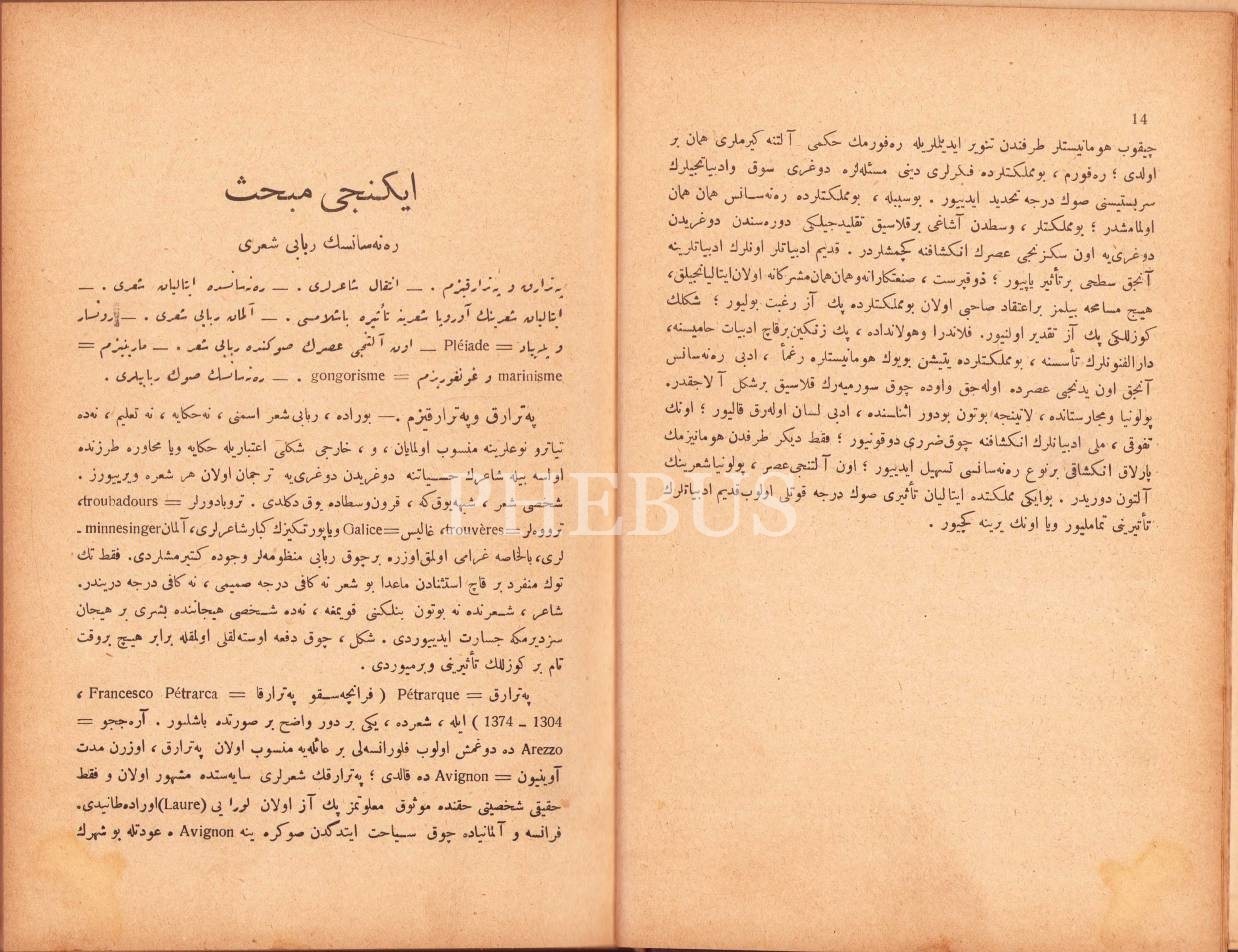 14
چیقوب هومانیستلر طرفندن تنویر ایدیلملریله ره‌فورمك حكمی آلتنه كیرملری همان بر
اولدی ؛ ره‌فورم ، بومملكتلرده فكرلری دینی مسئله‌لره دوغری سوق وادبیاتجیلرك
سربستیسنی صوك درجه تحدید ایدییور . بوسببله ، بومملكتلرده ره‌نه‌سانس همان همان
اولمامشدر ؛ بومملكتلر ، وسطدن آشاغی برقلاسیق تقلیدجیلكی دوره‌سندن دوغریدن
دوغری‌یه اون سكزنجی عصرك انكشافنه كچمشلردر . قدیم ادبیاتلر اونلرك ادبیاتلرینه
آنجق سطحی برتأثیر یاپیور ؛ ذوقپرست ، صنعتكارانه‌وهمان‌همان‌مشركانه اولان‌ایتالیانجیلق،
هیچ مسامحه بیلمز براعتقاد صاحبی اولان بومملكتلرده پك آز رغبت بولیور ؛ شكلك
كوزللكی پك آز تقدیر اولنیور. فلاندرا وهولانداده ، پك زنكین‌برقاچ ادبیات حامیسنه،
دارالفنونلرك تأسسنه ، بومملكتلرده یتیشن بویوك هومانیستلره رغماً ، ادبی ره‌نه‌سانس
آنجق اون یدنجی عصرده اوله‌جق واوده چوق سورمیه‌رك قلاسیق برشكل آلاجقدر.
پولونیا ومجارستانده ، لاتینجه بوتون بودور اثناسنده ، ادبی لسان اوله‌رق قالیور ؛ اونك
تفوقی ، ملی ادبیاتلرك انكشافنه چوق‌ضرری دوقونیور ؛ فقط دیكر طرفدن هومانیزمك
پارلاق انكشافی برنوع ره‌نه‌سانسی تسهیل ایدییور ؛ اون آلتنجی‌عصر ، پولونیاشعرینك
آلتون دوریدر. بوایكی مملكتده ایتالیان تأثیری صوك درجه قوتلی اولوب‌قدیم ادبیاتلرك
تأثیرینی تماملیور ویا اونك یرینه كچیور .
ایكنجی مبحث
ره‌نه‌سانسك ربابی شعری
په‌ترارق و په‌ترارقیزم . — انتقال شاعرلری . — ره‌نه‌سانسده ایتالیان شعری . —
ایتالیان شعرینك آوروپا شعرینه تأثیره باشلامسی . — آلمان ربابی شعری . — رونسار
و پله‌یاد = Pléiade — اون آلتنجی عصرك صوكنده ربابی شعر . — مارینیزم =
marinisme و غونغوریزم = gongorisme . — ره‌نه‌سانسك صوك ربابیلری .
په‌ترارق وپه‌ترارقیزم .— بوراده ، ربابی‌شعر اسمنی ، نه‌حكایه ، نه تعلیم ، نه‌ده
تیاترو نوعلرینه منسوب اولمایان ، و ، خارجی شكلی اعتباریله حكایه ویا محاوره طرزنده
اولسه بیله شاعرك حسیاتنه دوغریدن دوغری‌یه ترجمان اولان هر شعره ویرییورز .
شخصی شعر ، شبهه‌یوق‌كه ، قرون‌وسطاده یوق دكلدی . تروبادورلر = troubadours،
ترووه‌لر = trouvères، غالیس=Galice ویاپورتكیزك كبارشاعرلری، آلمانminnesinger ـ
لری، بالخاصه غرامی اولمق‌اوزره برچوق ربابی منظومه‌لر وجوده كتیرمشلردی. فقط تك
توك منفرد بر قاچ استثنادن ماعدا بو شعر نه كافی درجه صمیمی ، نه كافی درجه دریندر.
شاعر ، شعرنده نه بوتون بنلكنی قویمغه ، نه‌ده شخصی هیجاننده بشری بر هیجان
سزدیرمكه جسارت ایدییوردی . شكل ، چوق دفعه اوسته‌لقلی اولمقله برابر هیچ بروقت
تام بر كوزللك تأثیرینی ویرمیوردی .
په‌ترارق = Pétrarque ( فرانچه‌سقو په‌ترارقا = Francesco Pétrarca ،
1304 ـ 1374 ) ایله ، شعرده ، یكی بر دور واضح بر صورتده باشلیور . آره‌ججو =
Arezzo ده دوغمش اولوب فلورانسه‌لی بر عائله‌یه منسوب اولان په‌ترارق ، اوزرن مدت
آوینیون = Avignon ده قالدی ؛ په‌ترارقك شعرلری سایه‌سنده مشهور اولان و فقط
حقیقی شخصیتی حقنده موثوق معلوتمز پك آز اولان لورا یی (Laure)اوراده‌طانیدی.
فرانسه و آلمانیاده چوق سیاحت ایتدكدن صوكره ینه Avignon ه عودتله بو شهرك
PHEBUS